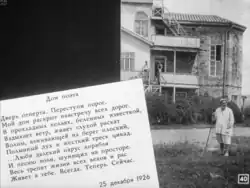 Дом поэта
Дверь отперта. Переступи порог.
Мой дом раскрыт навстречу всех дорог.
В прохладных кельях, беленных известкой,
Вздыхает ветр, живет глухой раскат
Волны, взмывающей на берег плоский,
Полынный дух и жесткий треск цикад.
Люби далекий парус корабля
И песню волн, шумящих на просторе.
Весь трепет жизни всех веков и рас
Живет в тебе. Всегда. Теперь. Сейчас.
25 декабря 1926
40